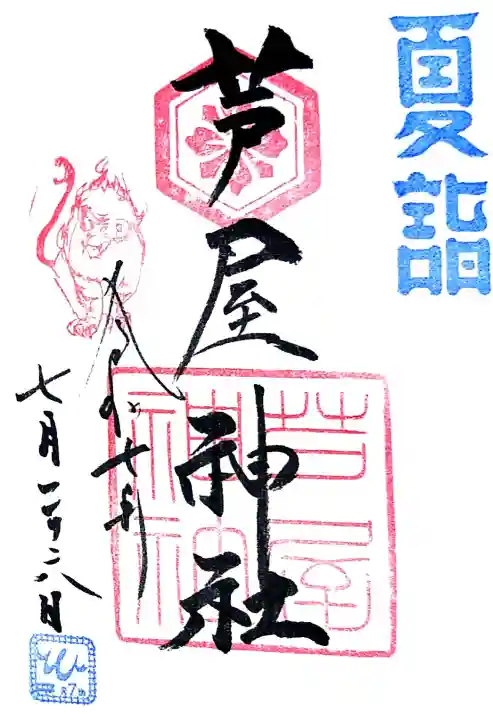 夏詣
芦屋神社
令和七年
七月二十八日
芦屋
神社